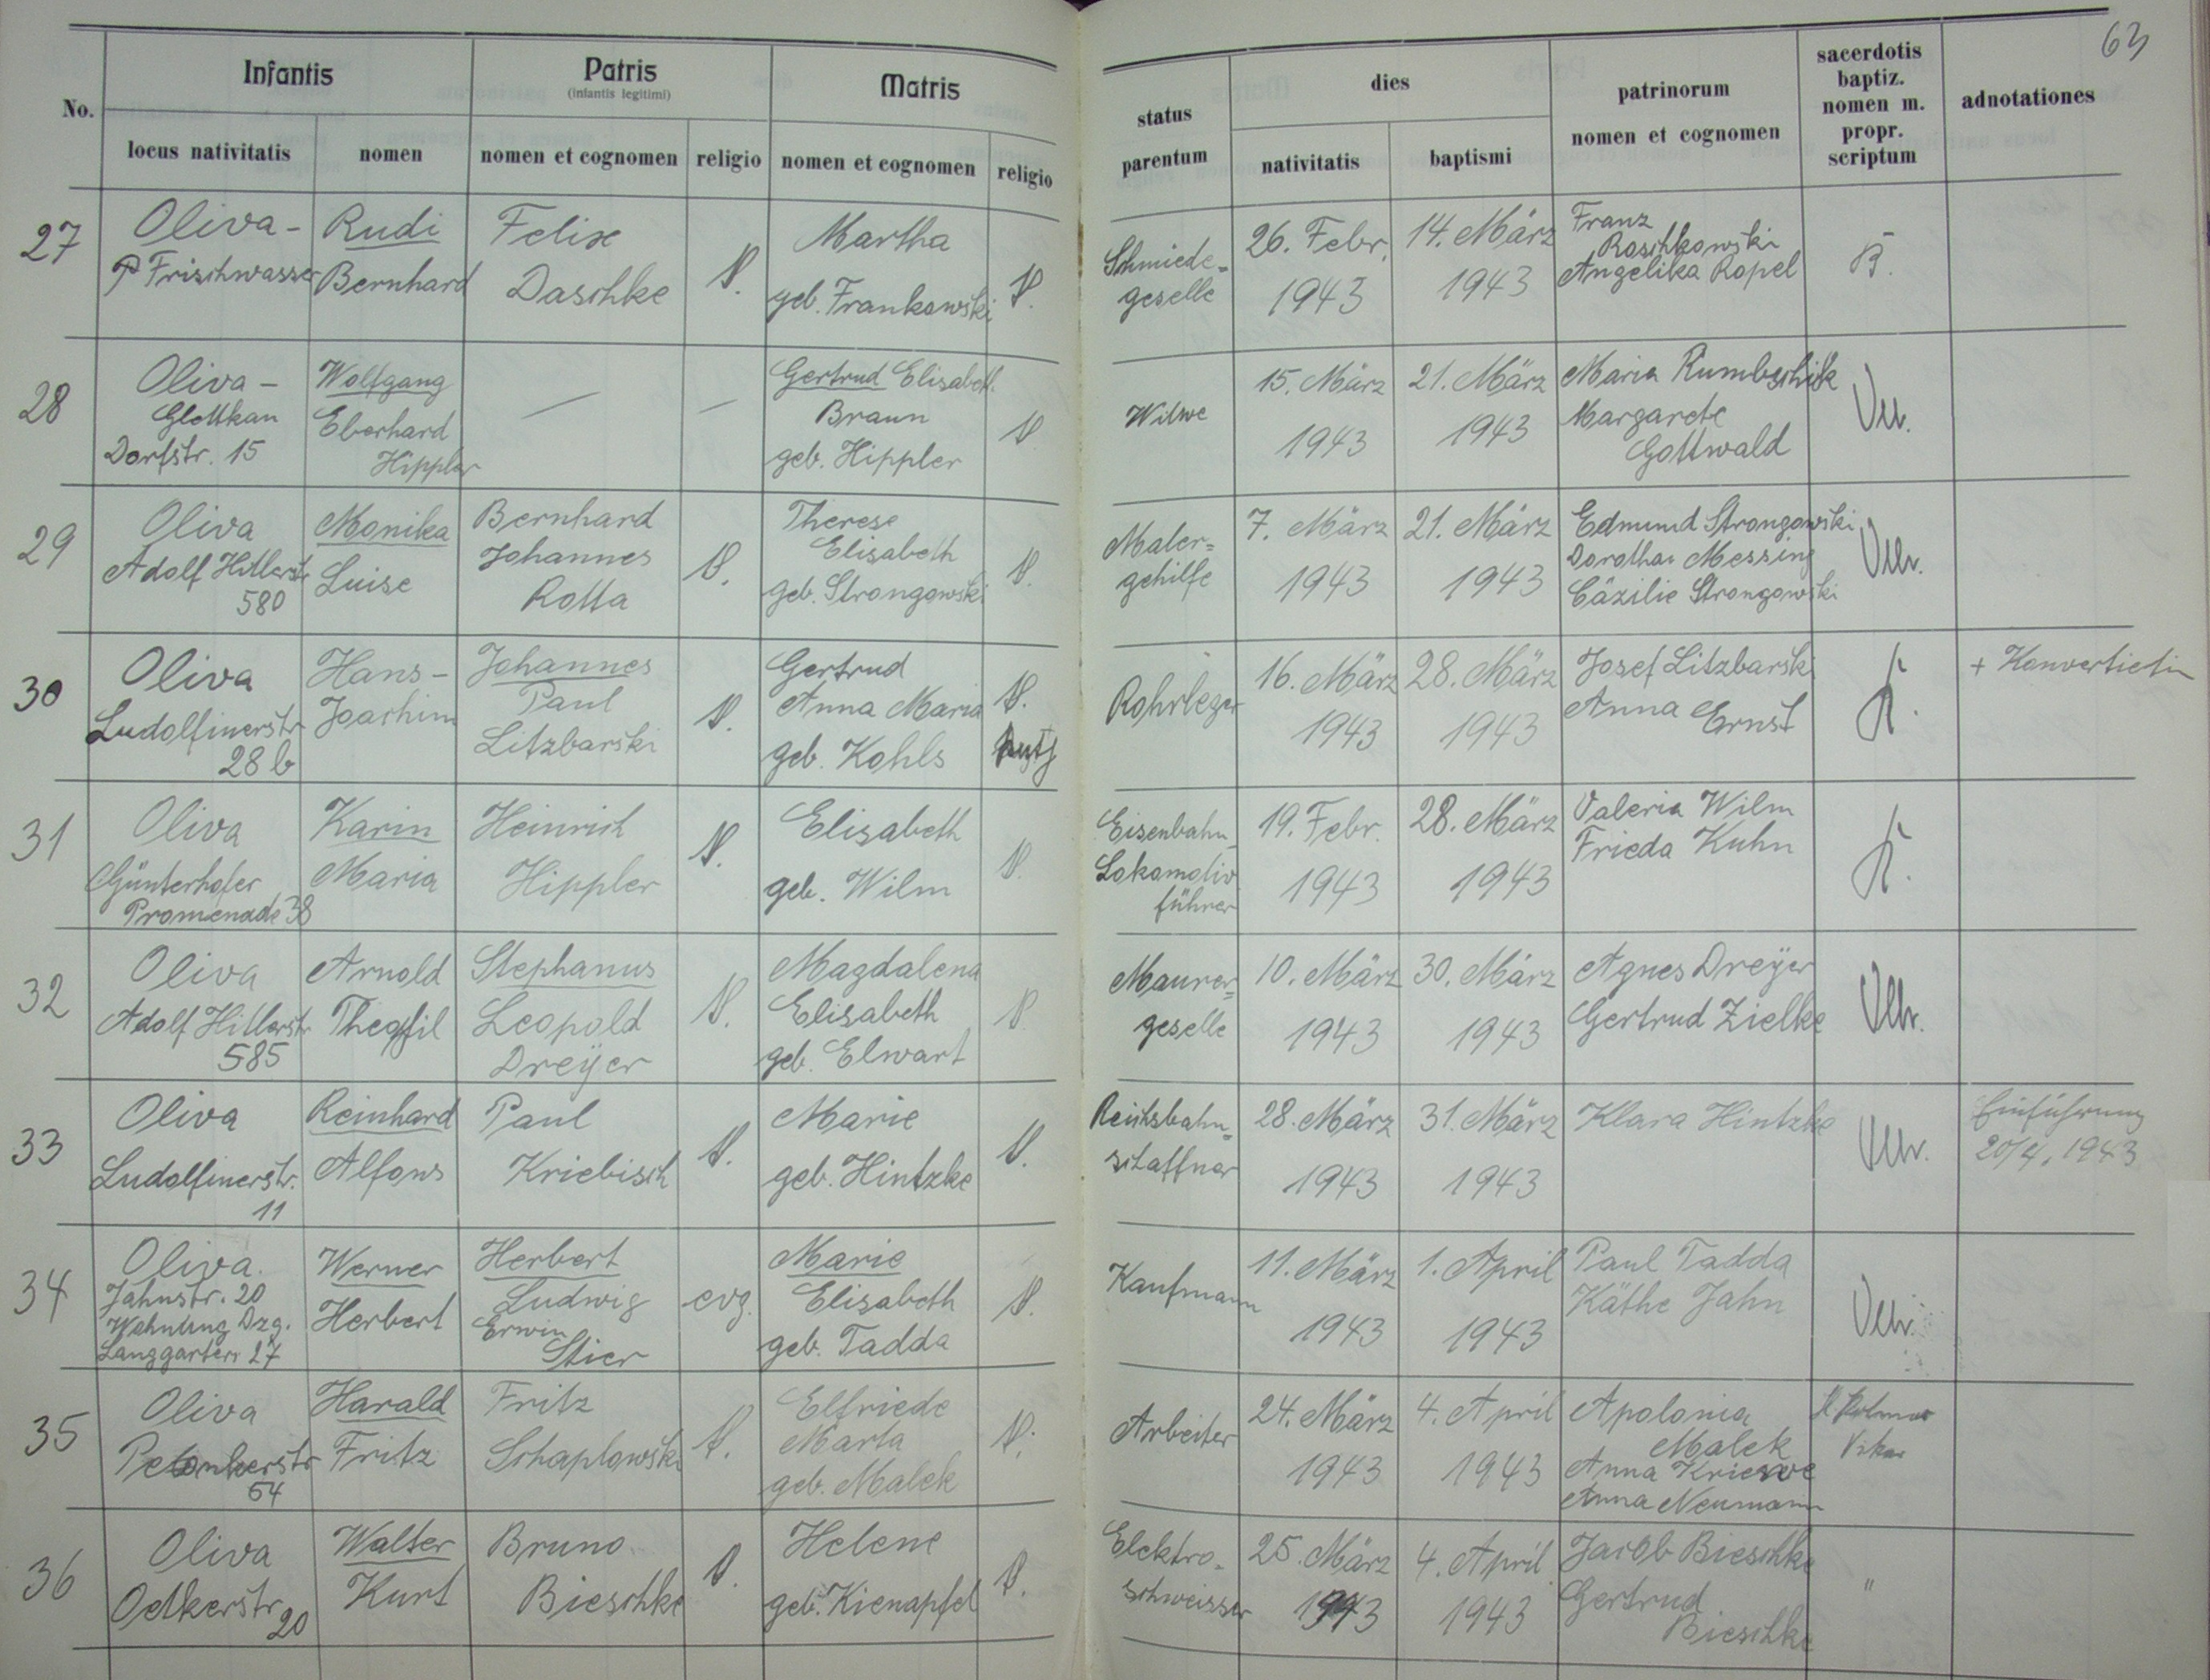 63
No.
Infantis
locus nativitatis
nomen
Patris
(infantis legitimi)
nomen et cognomen
religio
Matris
nomen et cognomen
religio
status
parentum
dies
nativitatis
baptismi
patrinorum
nomen et cognomen
sacerdotis
baptiz.
nomen m.
propr.
scriptum
adnotationes
27
Oliva-
Frischwasser
Rudi
Bernhard
Felix
Daschke
Martha
geb. Frankowski
Schmiede=
geselle
26. Febr.
1943
14. März
1943
Franz
Roschkowski
Angelika Ropel
28
Oliva-
Glettkau
Dorfstr. 15
Wolfgang
Eberhard
Hippler
—
—
Gertrud Elisabeth
Braun
geb. Hippler
Witwe
15. März
1943
21. März
1943
Maria
Margarete
Gottwald
29
Oliva
Adolf Hitlerstr
580
Monika
Luise
Bernhard
Johannes
Rotta
Therese
Elisabeth
geb. Strongowski
Maler=
gehilfe
7. März
1943
21. März
1943
Edmund Strongowski
Dorothea Messing
Cäzilie Strongowski
30
Oliva
Ludolfinerstr
28 b
Hans-
Joachim
Johannes
Paul
Litzbarski
Gertrud
Anna Maria
geb. Kohls
Rohrleger
16. März
1943
28. März
1943
Josef Litzbarski
Anna Ernst
+ Konvertitin
31
Oliva
Günterhofer
Promenade 38
Karin
Maria
Heinrich
Hippler
Elisabeth
geb. Wilm
Eisenbahn
Lokomotiv
führer
19. Febr.
1943
28. März
1943
Valeria Wilm
Frieda Kuhn
32
Oliva
Adolf Hitlerstr
585
Arnold
Theofil
Stephanus
Leopold
Dreÿer
Magdalena
Elisabeth
geb. Elwart
Maurer=
geselle
10. März
1943
30. März
1943
Agnes Dreÿer
Gertrud Zielke
33
Oliva
Ludolfinerstr.
11
Reinhard
Alfons
Paul
Kriebisch
Marie
geb. Hintzke
Reichsbahn=
schaffner
28. März
1943
31. März
1943
Klara Hintzke
Einführung
20/4. 1943
34
Oliva.
Jahnstr. 20
Wohnung Dzg.
Langgarten 27
Werner
Herbert
Herbert
Ludwig
Erwin
Stier
evg.
Marie
Elisabeth
geb. Tadda
Kaufmann
11. März
1943
1. April
1943
Paul Tadda
Käthe Jahn
35
Oliva
Pelonkerstr
54
Harald
Fritz
Fritz
Schaplowski
Elfriede
Marta
geb. Malek
Arbeiter
24. März
1943
4. April
1943
Apolonia
Malek
Anna Kriewe
Anna Neumann
Vikar
36
Oliva
Oelkerstr
20
Walter
Kurt
Bruno
Bieschke
Helene
geb. Kienapfel
Elektro=
schweisser
25. März
1943
4. April
1943
Jacob Bieschke
Gertrud
Bieschke
"